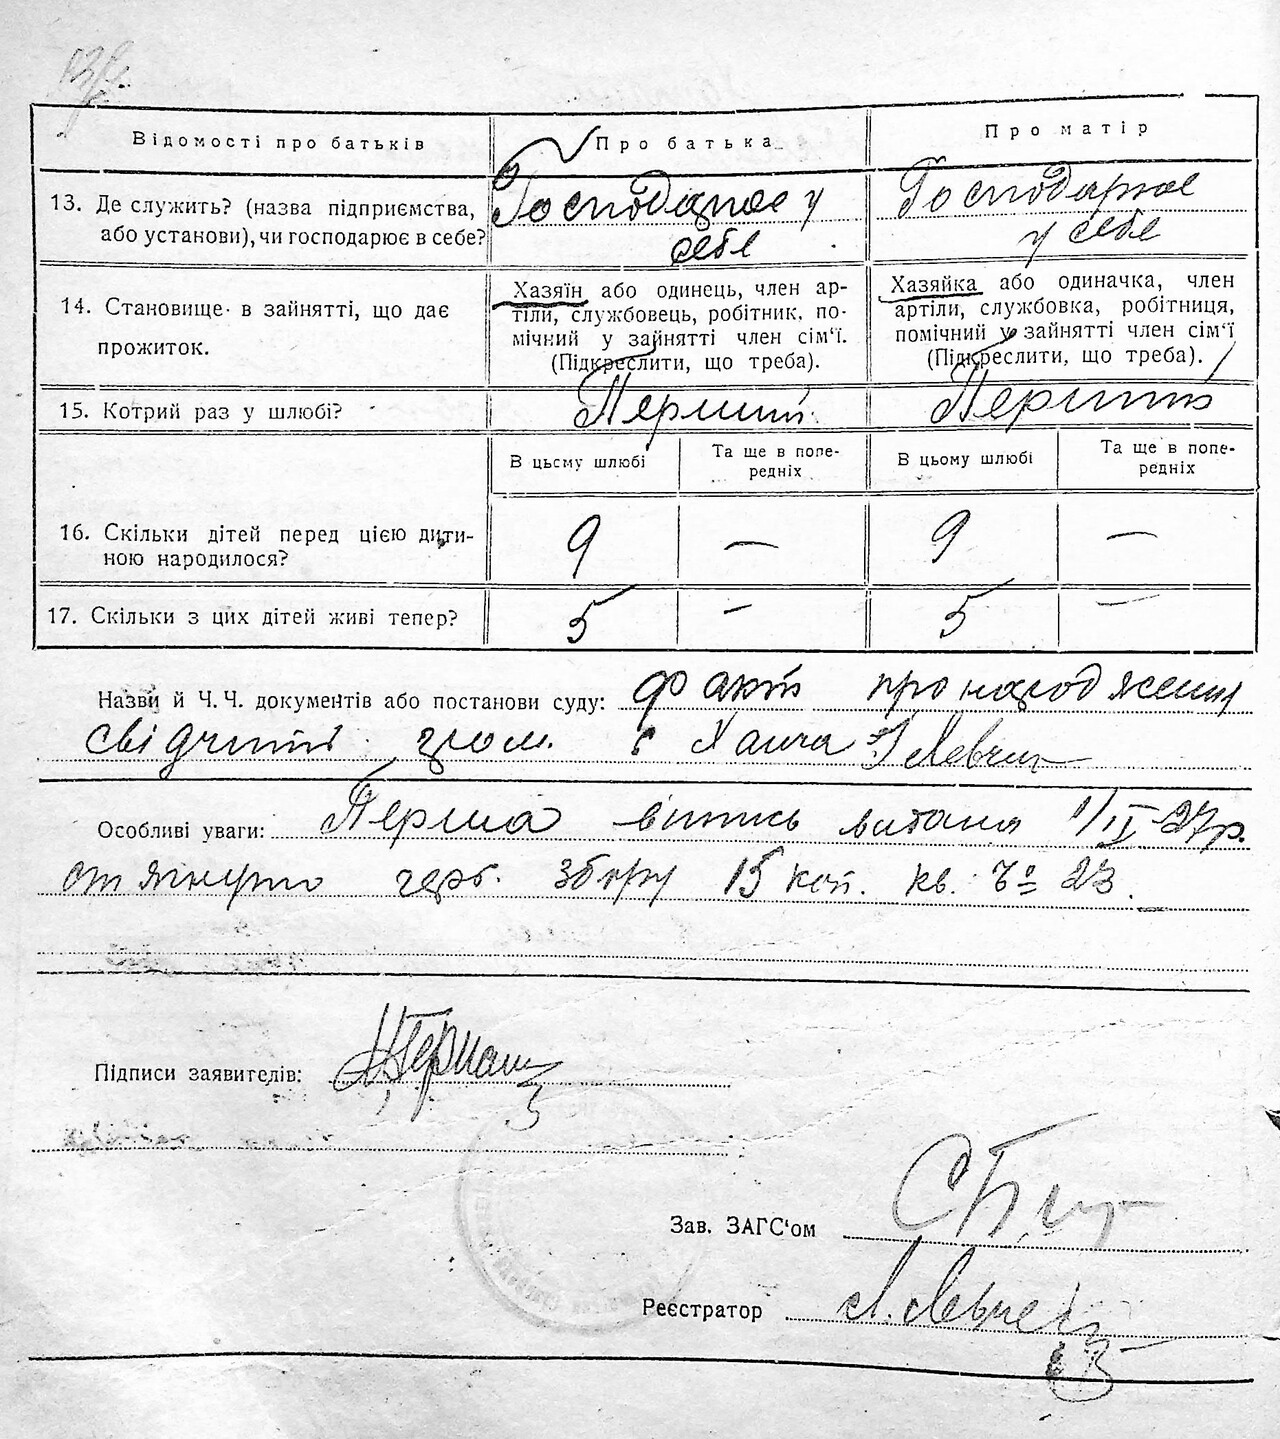 Відомості про батьків
Про батька
Про матір
13. Де служить? (назва підприємства,
або установи), чи господарює в себе?
Господарює у
себе
Господарює
у себе
14. Становище в зайнятті, що дає
прожиток.
Хазяїн або одинець, член ар-
тіли, службовець, робітник, по-
мічний у зайнятті член сім'ї.
(Підкреслити, що треба).
Хазяйка або одиначка, член
артіли, службовка, робітниця,
помічний у зайнятті член сім'ї
(Підкреслити, що треба).
15. Котрий раз у шлюбі?
Перший
Перший
В цьому шлюбі
Та ще в попе-
редніх
В цьому шлюбі
Та ще в попе-
редніх
16. Скільки дітей перед цією дити-
ною народилося?
9 — 9 —
17. Скільки з цих дітей живі тепер?
5 — 5 —
Назви й Ч. Ч. документів або постанови суду: факт про народження
свідчить гром.
Особливі уваги: Перша випись видана 1/II-27р.
стягнуто герб. збору 15 коп. кв. № 23
Підписи заявителів:
Зав. ЗАГС'ом
Реєстратор